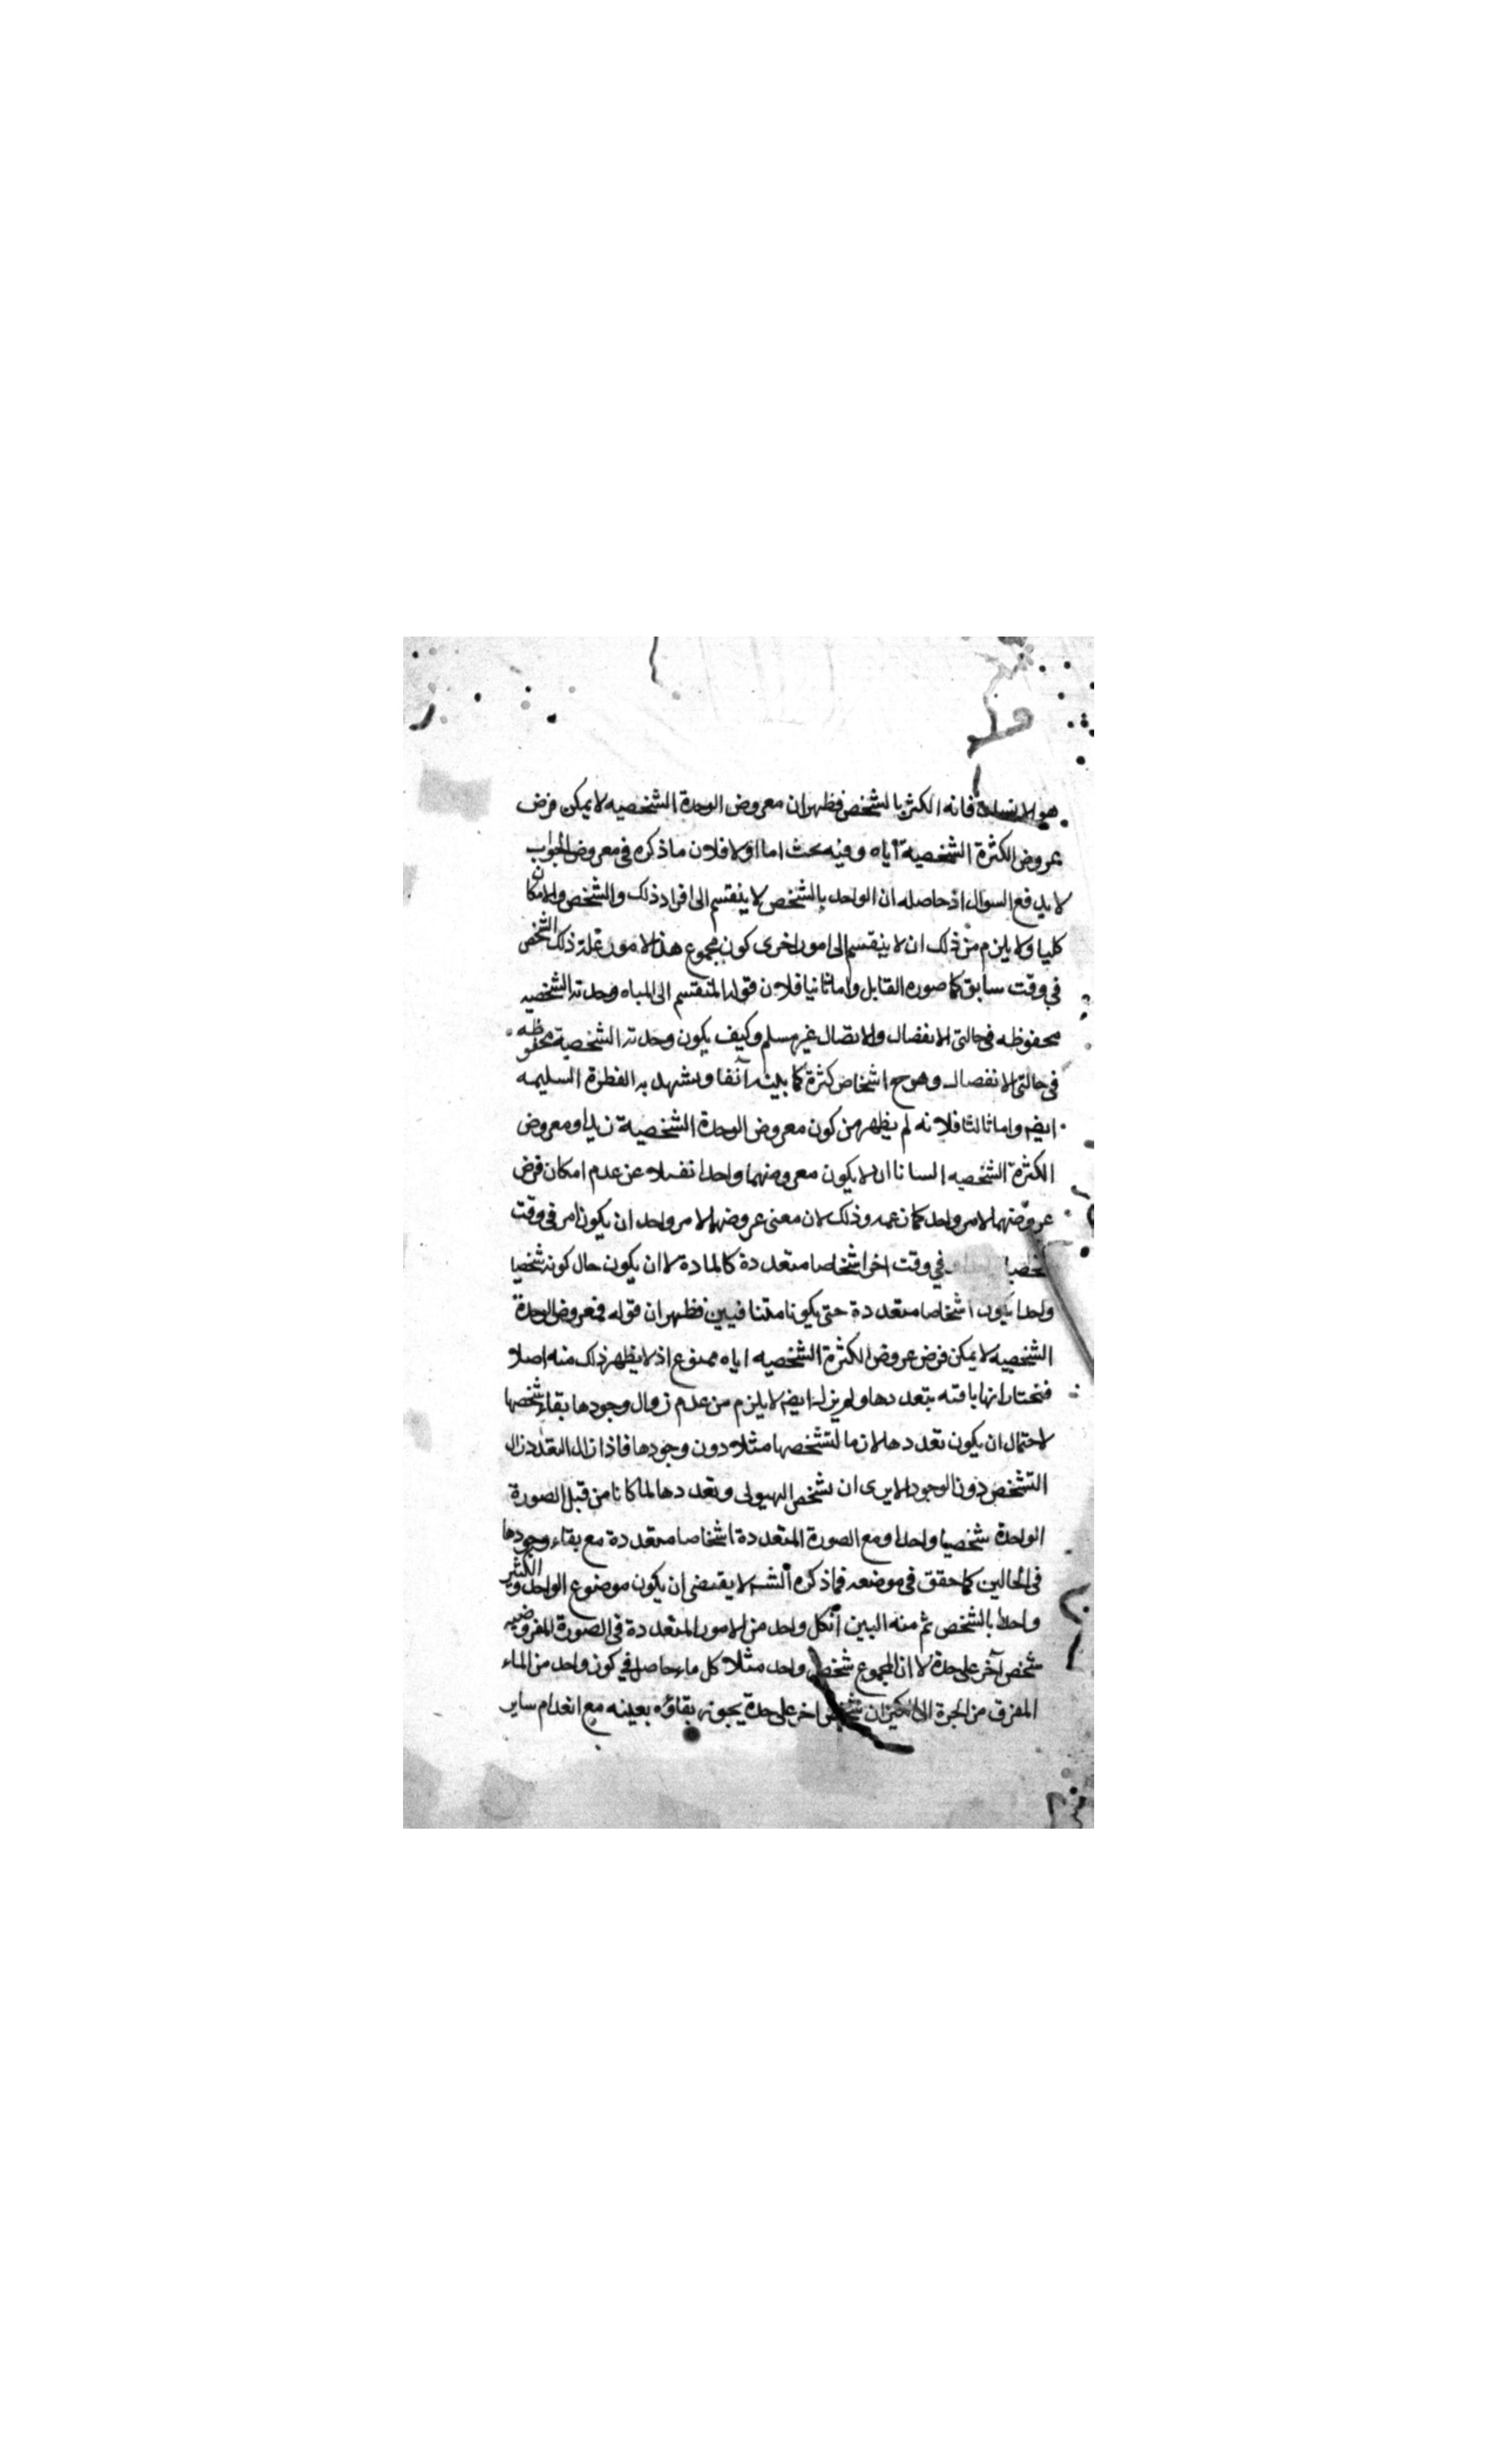 هو الانسان فانه الكثر بالشخص فظهر ان معروض الوحدة الشخصيه لا يمكن فرض
عروض الكثرة الشخصية اياه وفيه بحث اما اولا فلان ما ذكره في معروض الجواب
لا يدفع السوال اذ حاصله ان الواحد بالشخص لا ينقسم الى افراد ذلك والشخص والا كان
كليا ولا يلزم من ذلك ان لا ينقسم الى امور اخرى كون مجموع هذا الامور ذلك الشخص
في وقت سابق كما صوره القايل واما ثانيا فلان قوله المنقسم الى المياه وحدته الشخصيه
محفوظه في حالتى الانفصال والاتصال غير مسلم وكيف يكون وحدته الشخصية محفوظه
في حالتى الانفصال وهو ح اشخاص كثرة كما بينه آنفا ويشهد به الفطرة السليمه
ايضا واما ثالثا فلانه لم يظهر من كون معروض الوحدة الشخصية زيدا ومعروض
الكثرة الشخصيه انسانا ان لا يكون معروضهما واحدا فضلا عن عدم امكان فرض
عروضهما لامر واحد كما زعمه وذلك لان معنى عروضهما لامر واحد ان يكون امر في وقت
شخصا في وقت اخر اشخاصا متعددة كالمادة لا ان يكون حال كونه شخصا
واحدا يكون اشخاصا متعددة حتى يكونا متنافيين فظهر ان قوله فمعروض الوحدة
الشخصيه لا يمكن فرض عروض الكثرة الشخصيه اياه ممنوع اذ لا يظهر ذلك منه اصلا
فنختار انها باقيه بتعددها ولم يزل ايضا لا يلزم من عدم زوال وجودها بقاء شخصها
لاحتمال ان يكون تعددها لازما لتشخصها مثلا دون وجودها فاذا زال التعدد زال
التشخص دون الوجود الا يرى ان تشخص الهيولى وتعددها لما كانا من قبل الصورة
الواحدة شخصيا واحدا ومع الصورة المتعددة اشخاصا متعددة مع بقاء وجودها
في الحالين كما حقق في موضعه فما ذكره الش لا يقتضى ان يكون موضوع الواحد والكثير
واحدا بالشخص ثم منه البين ان كل واحد من الامور المتعددة في الصورة المفروضيه
شخص آخر على حدة لا ان المجموع شخص واحد مثلا كل ماء حاصل في كوز واحد من الماء
المفرق من الجرة الى الكيزان شخص اخر على حدة يجوز بقاؤه بعينه مع انعدام ساير